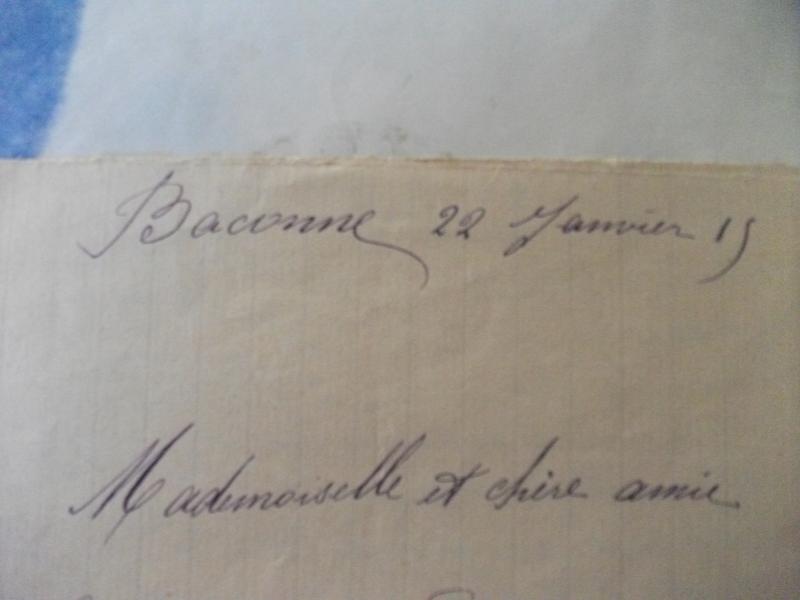 Baconne 22 Janvier 15
Mademoiselle et chère amie